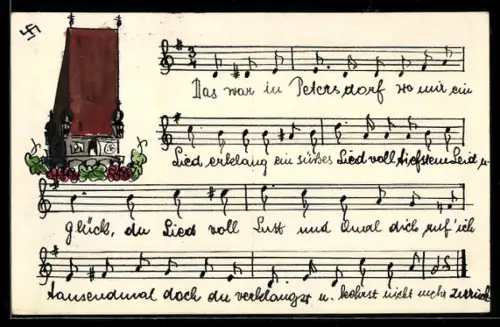 Das war in Petersdorf wo mir ein
Lied erklang ein süßes Lied voll tiefstem Leid u.
Glück, du Lied voll Lust und Qual dich ruf' ich
tausendmal doch du verklangst u. kehrst nicht mehr zurück